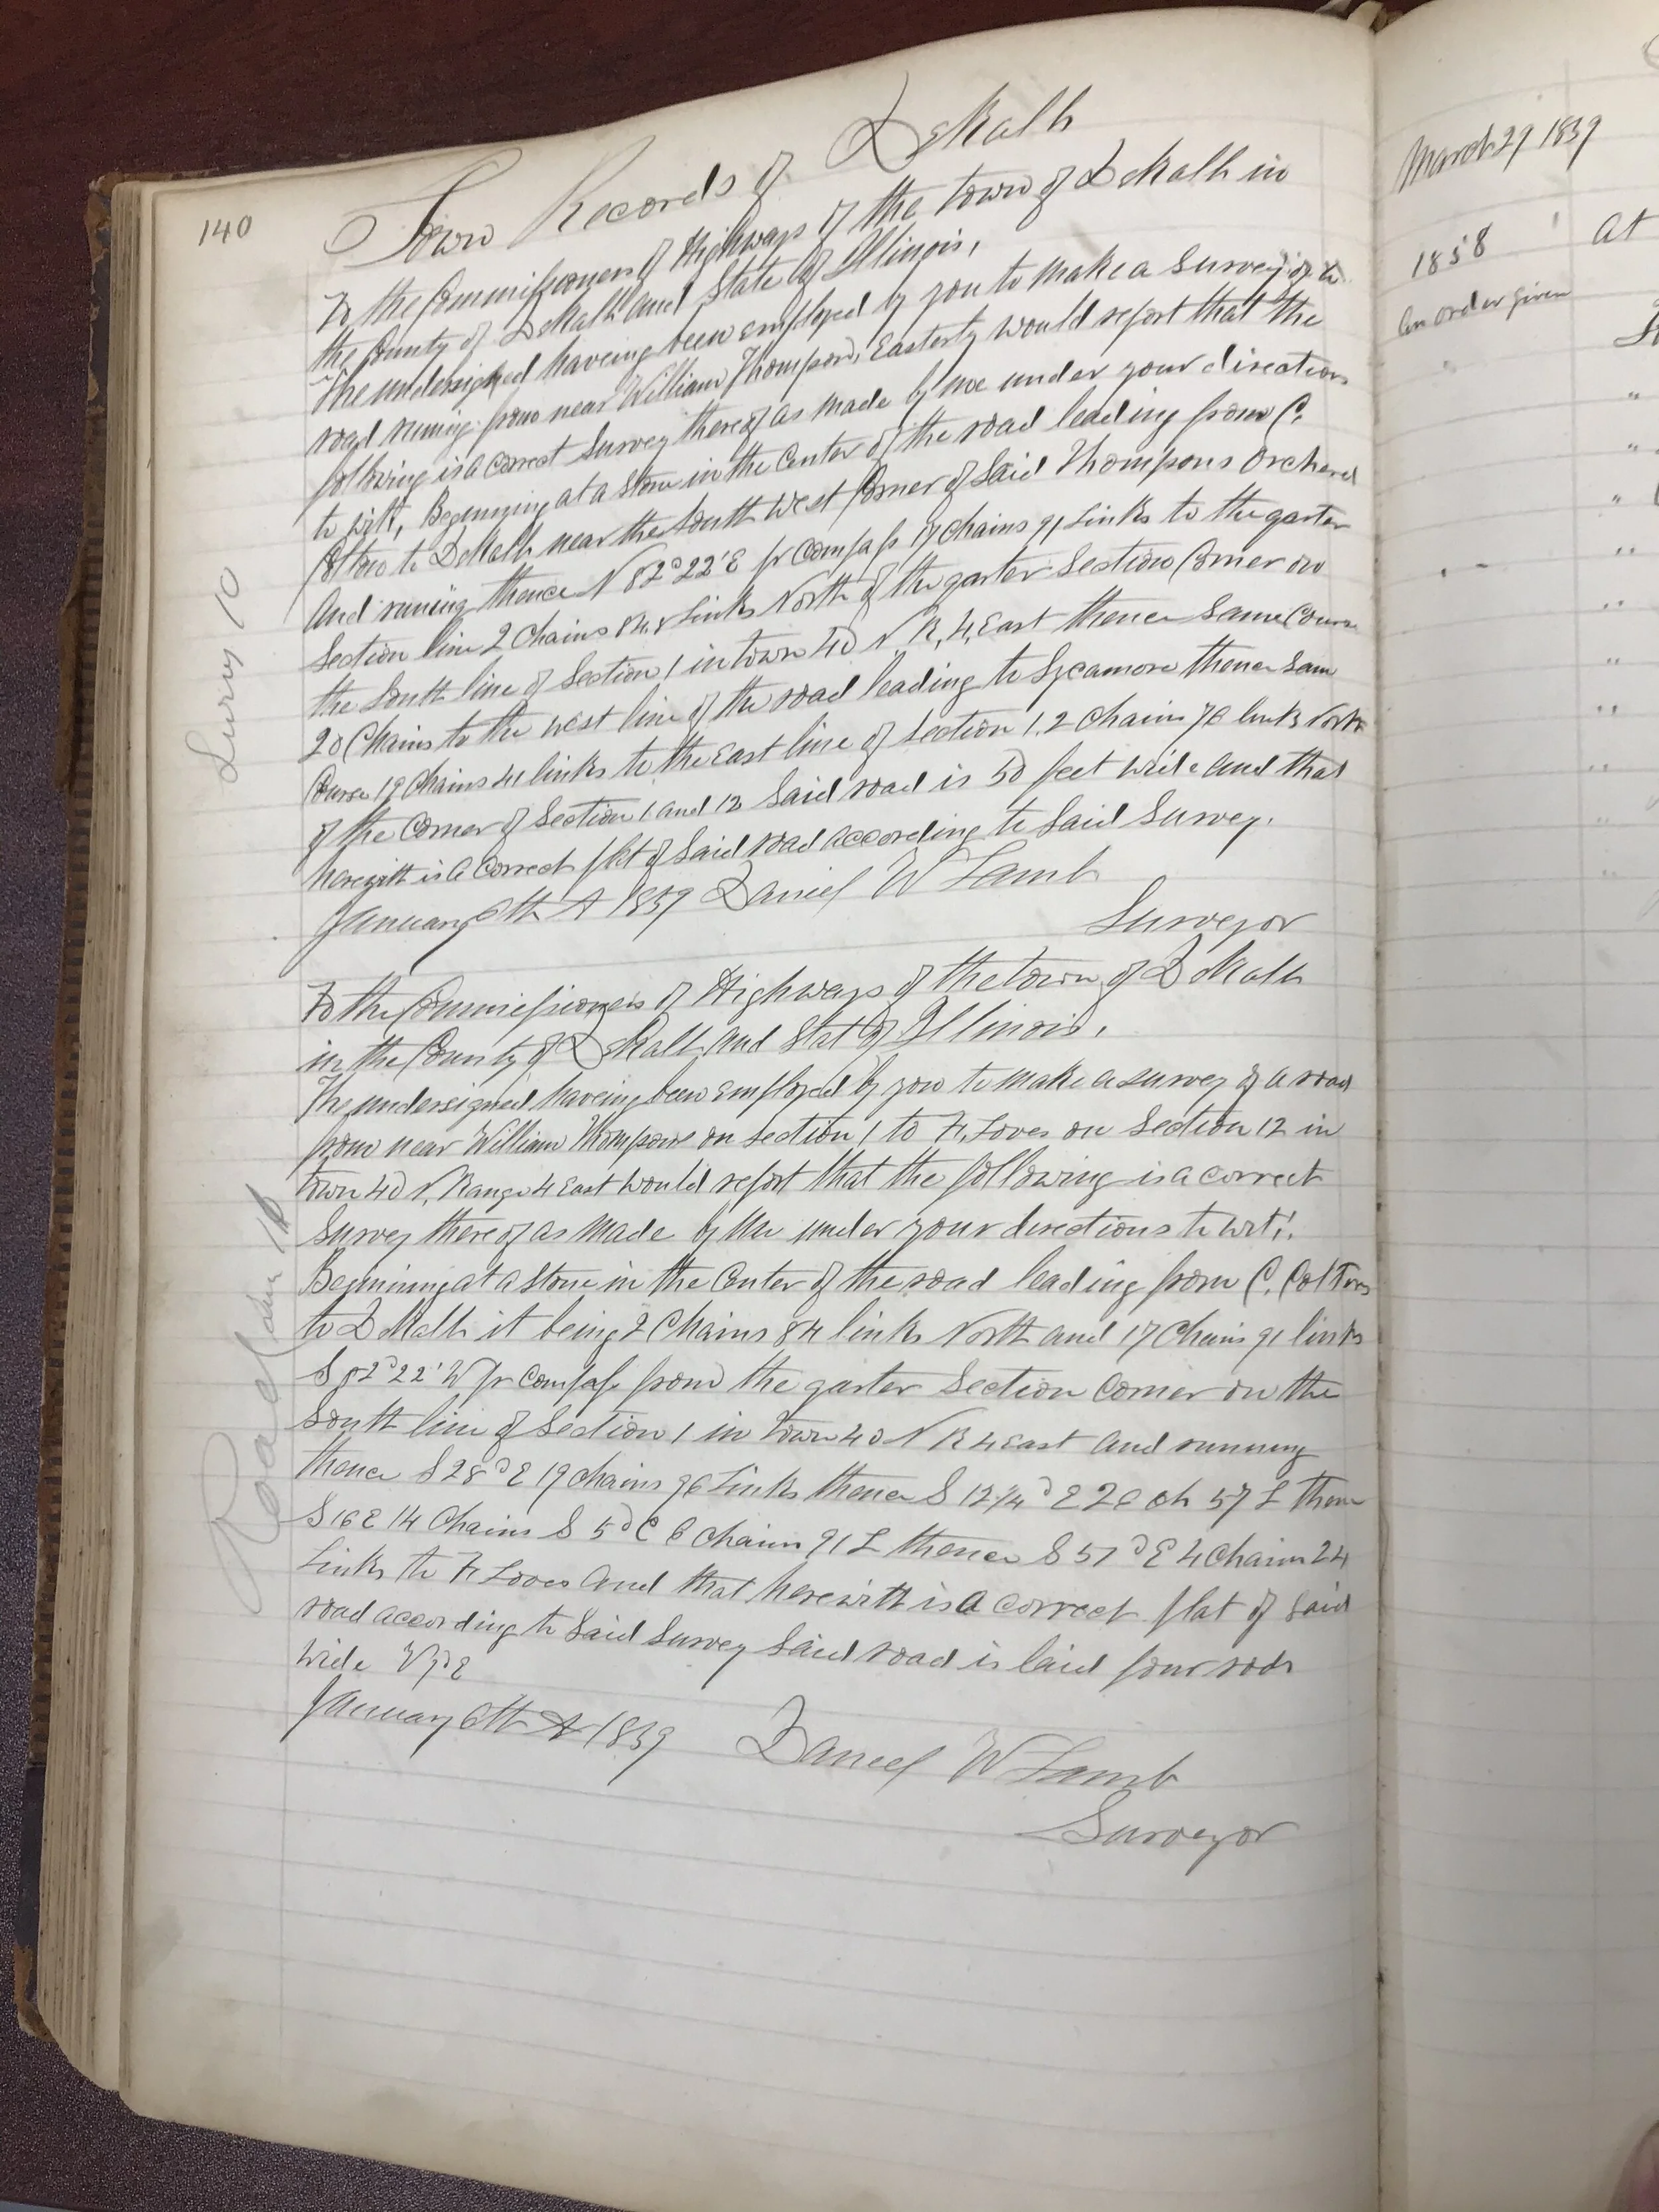 140
Town Records of DeKalb
To the Commissioners of Highways of the town of DeKalb in
the County of DeKalb and State of Illinois,
The undersigned haveing been employed by you to make a Survey of a
road runing from near William Thompsons Easterly would report that the
following is a Correct Survey thereof as made by me under your directions
to wit, Beginning at a Stone in the Center of the road leading from C.
Colton to DeKalb near the South West Corner of Said Thompsons Orchard
And runing thence N 82° 22' E pr Compass 17 Chains 91 Links to the qarter
Section line 2 Chains 84 Links North of the qarter Section Corner on
the South line of Section 1 in town 40 N R, 4, East thence Same Course
20 Chains to the West line of the road leading to Sycamore thence Sam
Course 19 Chains 41 links to the East line of Section 1, 2 Chains 76 links North
of the Corner of Section 1 and 12 Said road is 50 feet wide and that
herewith is a Correct plat of Said road according to Said Survey.
January 6th A 1859 Daniel W Lamb
Surveyor
To the Commissioners of Highways of the town of DeKalb
in the County of DeKalb and Stat of Illinois,
The undersigned haveing been employed by you to make a survey of a road
from near William Thompsons on section 1 to H. Loves on Section 12 in
town 40 N, Range 4 East would report that the following is a correct
Survey thereof as made by me under your directions to wit,
Beginning at a Stone in the Center of the road leading from C. Coltons
to DeKalb it being 2 Chains 84 links North and 17 Chains 91 links
S 82° 22' W pr Compass from the qarter Section Corner on the
South line of Section 1 in town 40 N R 4 East and running
thence S 28° E 19 chains 96 Links thence S 12 1/4° E 26 ch 57 L thence
S 16 E 14 Chains S 5° E 6 chains 91 L thence S 57° E 4 Chains 24
Links to H Loves and that herewith is a correct plat of Said
road according to Said Survey Said road is laid four rods
wide
January 6th A 1859 Daniel W Lamb
Surveyor
March 29 1859
1858
An order given
At